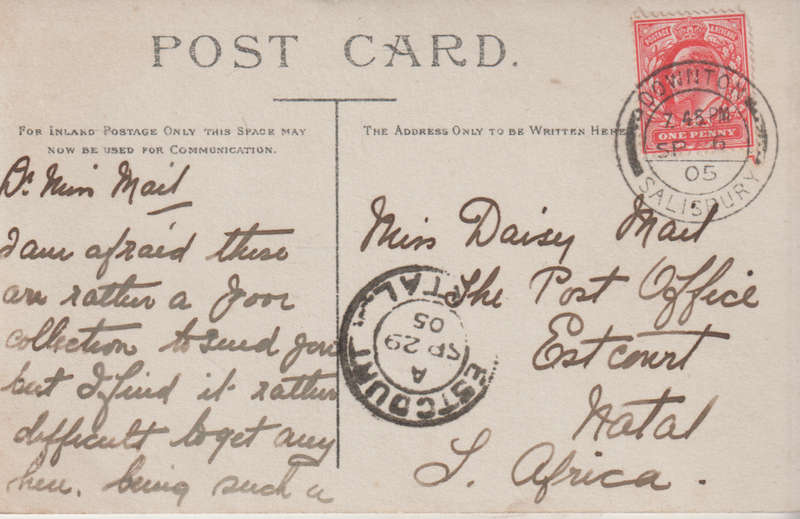 POST CARD.
FOR INLAND POSTAGE ONLY THIS SPACE MAY
NOW BE USED FOR COMMUNICATION.
THE ADDRESS ONLY TO BE WRITTEN HERE
POSTAGE REVENUE
ONE PENNY
DOWNTON
7 45 PM
SP
05
SALISBURY
Dr Miss Mail
I am afraid these
are rather a poor
collection to send you
but I find it rather
difficult to get any
here, being such a
Miss Daisy Mail
The Post Office
Estcourt
Natal
S. Africa.
ESTCOURT
A
SP 29
05
NATAL